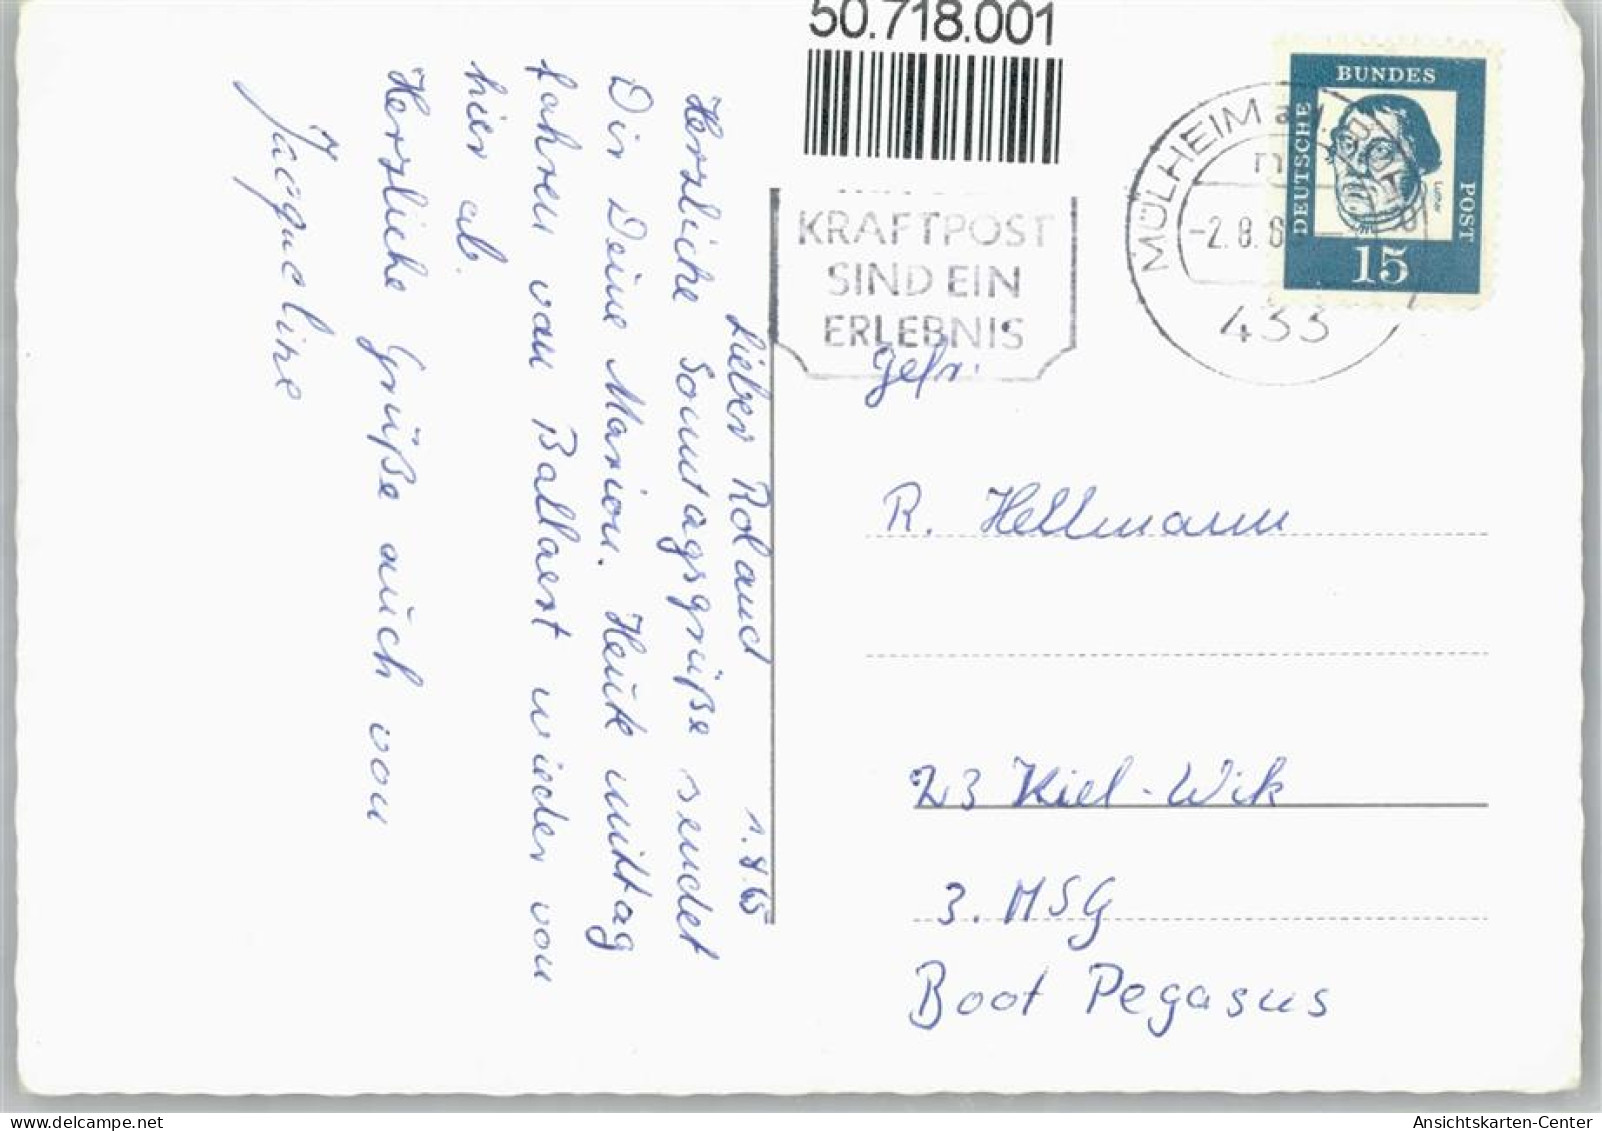 50.718.001
BUNDES
DEUTSCHE
POST
Luther
15
MÜLHEIM
-2.8.6
433
KRAFTPOST
SIND EIN
ERLEBNIS
Gefr.
R. Hellmann
23 Kiel-Wik
3. MSG
Boot Pegasus
1.8.65
Lieber Roland
Herzliche Sonntagsgrüße sendet
Dir Deine Marion. Heute mittag
fahren van Ballaert wieder von
hier ab.
Herzliche Grüße auch von
Jacqueline
Ansichtskarten-Center